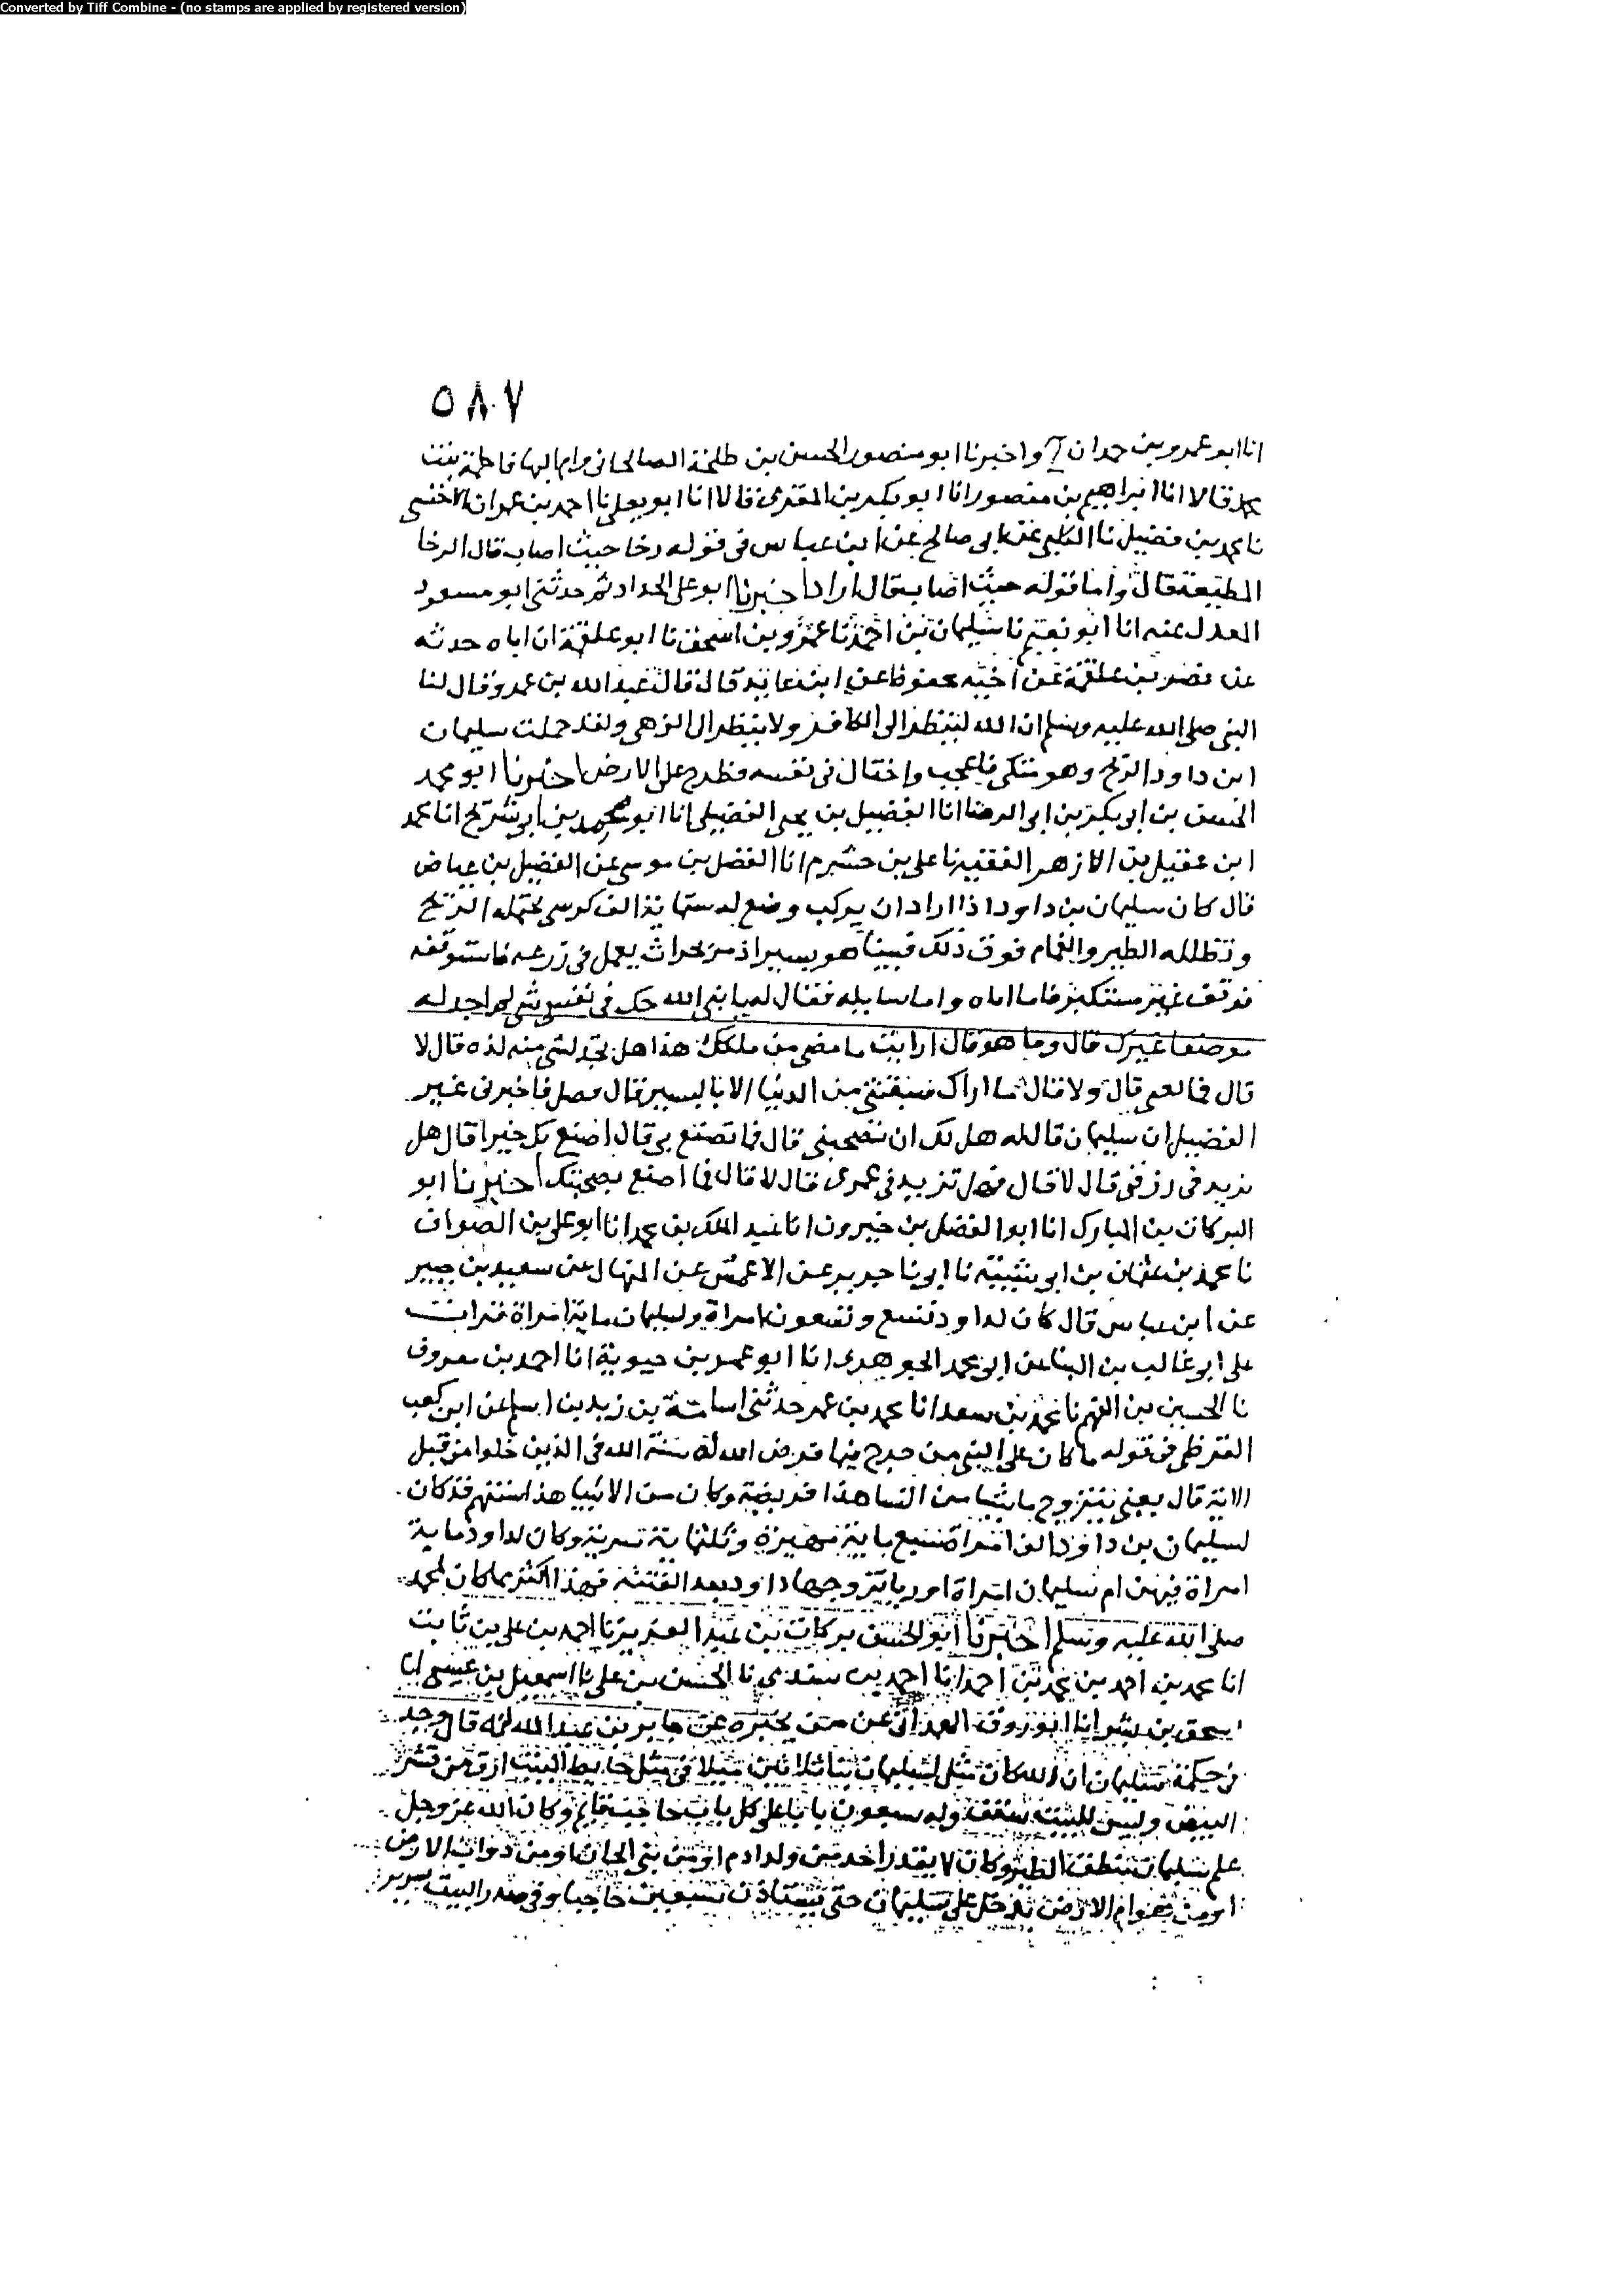 Converted by Tiff Combine - (no stamps are applied by registered version)
٥٨٧
انا ابو عمرو بن حمدان ح واخبرنا ابو منصور الحسين بن طلحة الصالحاني وام البها فاطمة بنت
محمد قالا انا ابراهيم بن منصور انا ابو بكر بن المقرئ قالا انا ابو يعلى نا احمد بن عمران الاخنسي
نا محمد بن فضيل نا الكلبي عن ابي صالح عن ابن عباس في قوله رخا حيث اصاب قال الرخا
المطيعة قال واما قوله حيث اصاب قال اراد اخبرنا ابو علي الحداد ثم حدثني ابو مسعود
المعدل عنه انا ابو نعيم نا سليمان بن احمد نا عمرو بن اسحق نا ابو علقمة ان اباه حدثه
عن نصر بن علقمة عن اخيه محفوظ عن ابن عايذ قال قال عبد الله بن عمرو قال لنا
النبي صلى الله عليه وسلم ان الله لينظر الى الكافر ولا ينظر الى الزهي ولقد حملت سليمان
ابن داود الريح وهو متكي فاعجب واختال في نفسه فطرح على الارض اخبرنا ابو محمد
الحسن بن ابي بكر بن ابي الرضا انا الفضيل بن يحيى الفضيلي انا ابو محمد بن ابي شريح انا محمد
ابن عقيل بن الازهر الفقيه نا علي بن خشرم انا الفضل بن موسى عن الفضيل بن عياض
قال كان سليمان بن داود اذا اراد ان يركب وضع له ستماية الف كرسي تحمله الريح
وتظلله الطير والغمام فوق ذلك فبينا هو يسير اذ مر بحراث يعمل في زرعه فاستوقفه
فوقف غير مستكبر فاما اتاه واما سايله فقال له يا نبي الله حك في نفسي شي لم اجد له
موضعا غيرك قال وما هو قال ارايت ما مضى من ملكك هذا هل تجد لشي منه لذه قال لا
قال فما لعي قال ولا قال ما اراك سبقتني من الدنيا الا باليسير قال فضل فاخبرني غير
الفضيل ان سليمان قال له هل لك ان تصحبني قال فما تصنع بي قال اصنع بك خيرا قال هل
تزيد في رزقي قال لا قال فهل تزيد في عمري قال لا قال فما اصنع بصحبتك اخبرنا ابو
البركات بن المبارك انا ابو الفضل بن خيرون انا عبد الملك بن محمد انا ابو علي بن الصواف
نا محمد بن عثمان بن ابي شيبة نا ابي نا جرير عن الاعمش عن المنهال عن سعيد بن جبير
عن ابن عباس قال كان لداود تسع وتسعون امراة ولسليمان ماية امراة قرات
على ابو غالب بن البنا عن ابي محمد الجوهري انا ابو عمر بن حيوية انا احمد بن معروف
نا الحسين بن الفهم نا محمد بن سعد انا محمد بن عمر حدثني اسامة بن زيد بن اسلم عن ابن كعب
القرظي في قوله ما كان على النبي من حرج فيما فرض الله له سنة الله في الذين خلوا من قبل
الاية قال يعني يتزوج ما شا من النسا هذا فريضة وكان من الانبيا هذا سنتهم قد كان
لسليمان بن داود الف امراة سبع ماية مهيرة وثلثماية سرية وكان لداود ماية
امراة فيهن ام سليمان امراة اوريا تزوجها داود بعد الفتنة فهذا اكثر مما كان لمحمد
صلى الله عليه وسلم اخبرنا ابو الحسن بركات بن عبد العزيز نا احمد بن علي بن ثابت
انا محمد بن احمد بن محمد بن احمد انا احمد بن سندي نا الحسن بن علي نا اسمعيل بن عيسى انا
اسحق بن بشر انا ابو روق العداني عن من يخبره عن جابر بن عبد الله انه قال وجد
في حكمة سليمان ان الله كان مثل لسليمان بيتا ثلاثين ميلا في مثل حايط البيت ارق من قشر
البيض وليس للبيت سقف وله سبعون بابا على كل باب حاجب قايم وكان الله عز وجل
علم سليمان منطق الطير وكان لا يقدر احد من ولد ادم او من بني الجان او من دواب الارض
او من هوام الارض تدخل على سليمان حتى يستاذن سبعين حاجبا وفي صدر البيت سرير